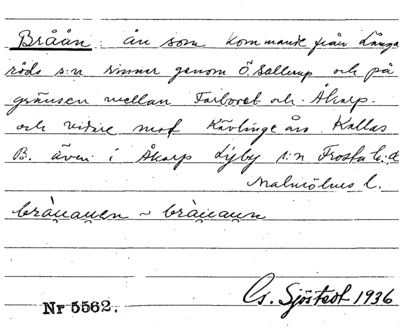 Bråån: ån som kommande från Långa
röds s:n rinner genom Ö. Sallerup och på
gränsen mellan Farboret och Åkarp
och vidare mot Kävlinge ån Kallas
B. även i Åkarp Lyby s:n Frosta h:d
Malmöhus l.
bràu̯au̯en ~ bràu̯au̯n
Nr 5562.
G. Sjöstedt 1936